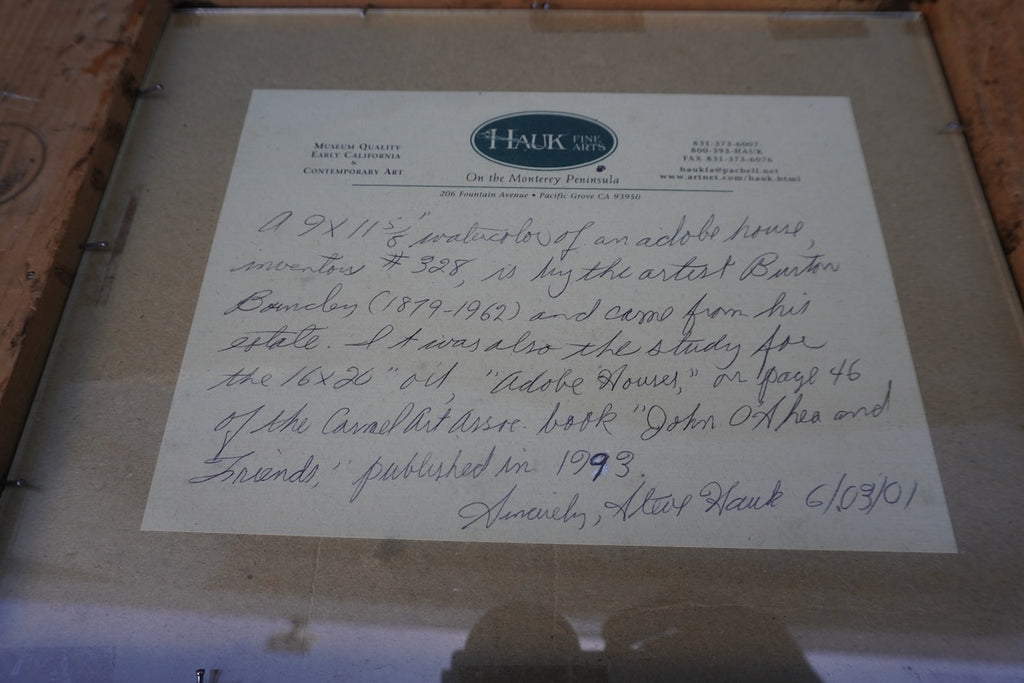 MUSEUM QUALITY
EARLY CALIFORNIA
&
CONTEMPORARY ART
HAUK FINE ARTS
On the Monterey Peninsula
206 Fountain Avenue • Pacific Grove CA 93950
831-373-6007
800-593-HAUK
FAX 831-373-6076
haukfa@pacbell.net
www.artnet.com/hauk.html
A 9 X 11 5/8" watercolor of an adobe house,
inventory # 328, is by the artist Burton
Boundey (1879-1962) and came from his
estate. It was also the study for
the 16x20" oil, "Adobe Houses," on page 46
of the Carmel Art Assoc. book "John O'Shea and
Friends," published in 1993.
Sincerely, Steve Hauk 6/03/01